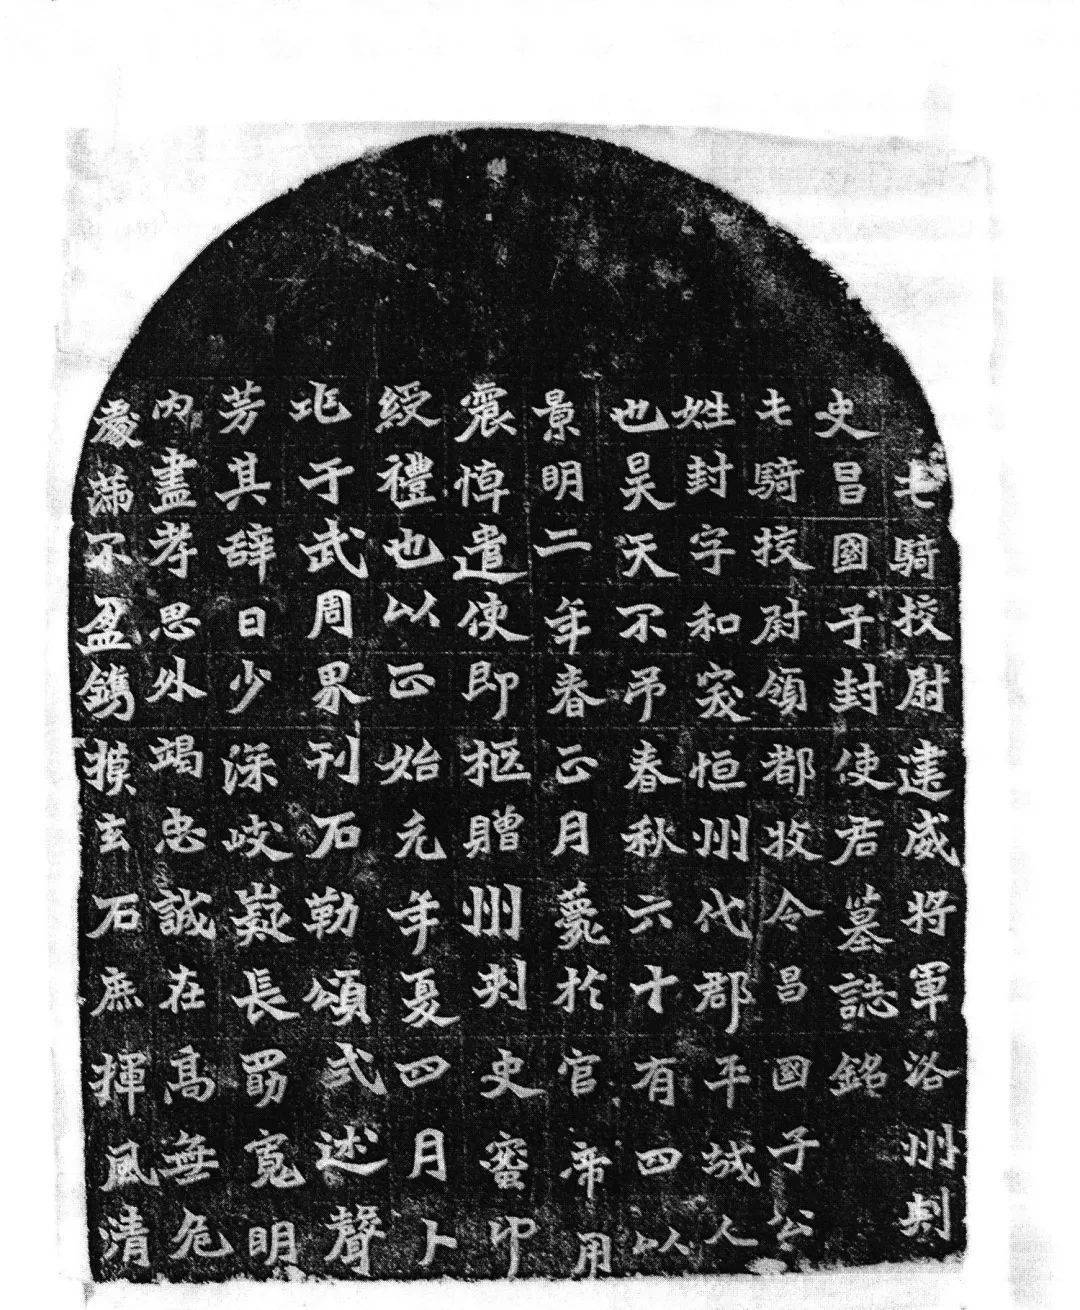 屯騎挍尉建威將軍洛州刾
史昌國子封使君墓誌銘
屯騎挍尉領都牧令昌國子公
姓封字和突恒州代郡平城人
也昊天不弔春秋六十有四以
景明二年春正月薨於官帝用
震悼遣使即柩贈州刾史蜜印
綬禮也以正始元年夏四月卜
兆于武周界刊石勒頌式述聲
芳其辭曰少深岐嶷長勗寬明
內盡孝思外竭忠誠在高無危
處滿不盈鐫摸玄石庶揮風清